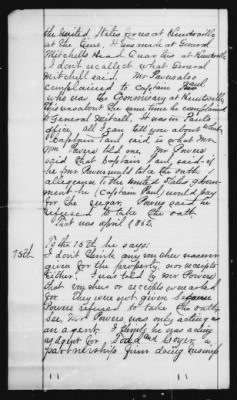 the United States forces at Huntsville
at the time. It was made at General
Mitchell's Head Quarters at Huntsville
I don't recollect what General
Mitchell said. Mr Powers also
complained to Captain Paul
who was the Commissary at Huntsville
this was about the same time he complained
to General Mitchell. It was in Paul's
office, all I can tell you about what
Captain Paul said is what Mr.
Wm Powers told me. Mr Powers
said that Captain Paul said if
he Mr Powers would take the oath of
allegiance to the United States govern-
ment he (Captain Paul) would pay
for the sugar. Powers said he
refused to take the oath.
That was April 1862.
15th
To the 15th he says:
I don't think any voucher was ever
given for the property, nor receipts
either. I was told by Mr Powers
that vouchers or receipts were asked
for. They were not given because
Powers refused to take the oath.
Mr. Powers was only acting as
an agent. I think he was acting
as agent for and a
partnership firm doing business